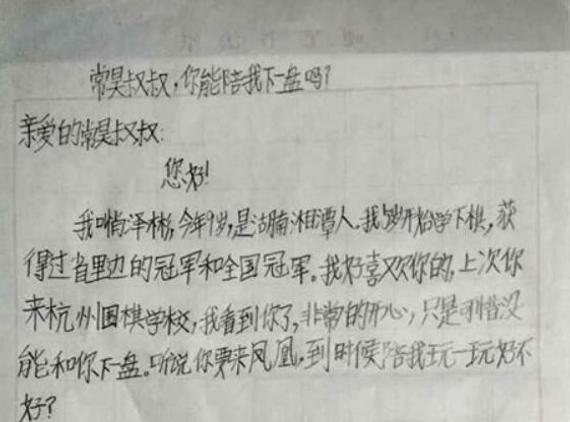 常昊叔叔,你能陪我下一盘吗?
亲爱的常昊叔叔:
您好!
我叫尚泽彬,今年9岁,是湖南湘潭人.我5岁开始学下棋,获
得过省里边的冠军和全国冠军。我好喜欢你的,上次你
来杭州围棋学校,我看到你了,非常的开心,只是可惜没
能和你下一盘.听说你要来凤凰,到时候陪我玩一玩好不
好?